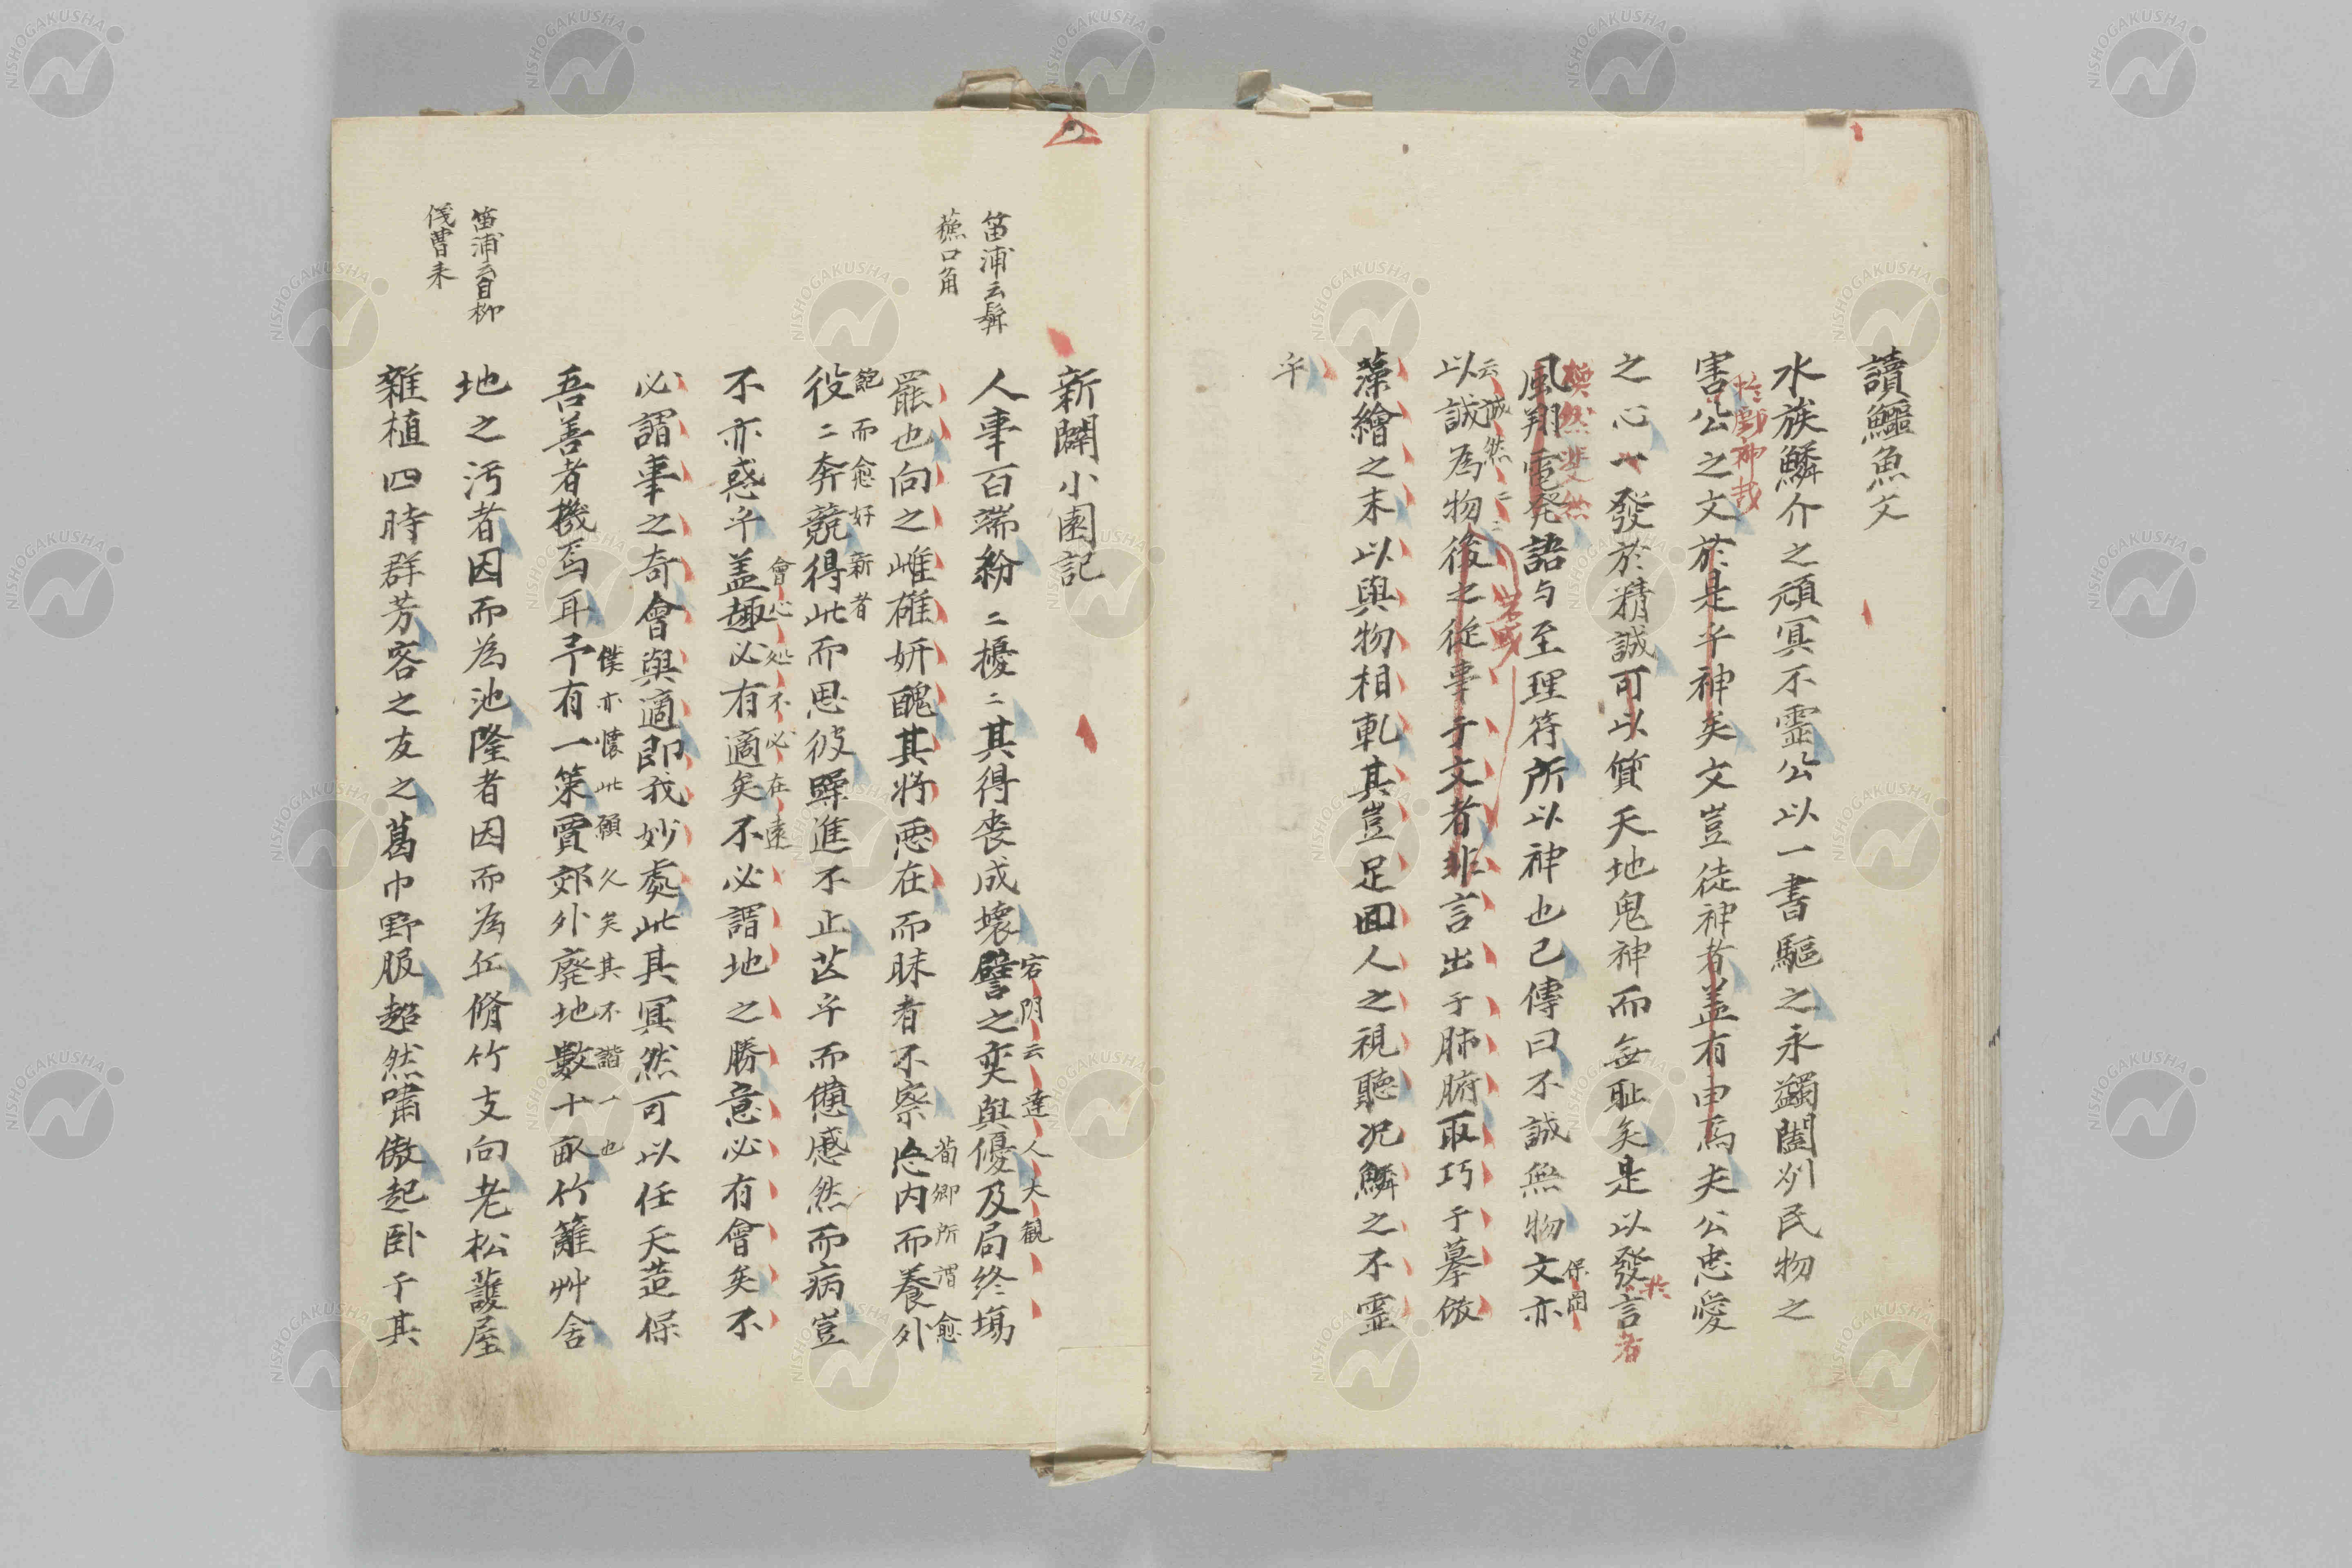 讀鱷魚文
水族鱗介之頑冥不霊公以一書驅之永蠲闔州民物之
害公之文於是乎神矣文豈徒神者盖有由焉夫公忠愛
於戯神哉
之心一發於精誠可以質天地鬼神而無耻矣是以發言
於
者
煥然斐然
風翔電発語与至理符所以神也已傳曰不誠無物文亦
保岡
云誠然二二
以誠為物後之従事于文者非言出于肺腑取巧于摹倣
藻繪之末以與物相軋其豈足回人之視聽况鱗之不霊
乎
新闢小園記
笛浦云
蘓口角
宕門云達人大観
人事百端紛二擾二其得喪成壊譬之奕與優及局終塲
荀卿所謂愈
罷也向之雌雄妍醜其将悪在而昧者不察沾内而養外
飽而愈好新者
役二奔競得此而思彼躁進不止芒乎而憊慼然而病豈
會心処不必在遠
不亦惑乎盖趣必有適矣不必謂地之勝意必有會矣不
必謂事之奇會與適即我妙處此其冥然可以任天造保
僕亦懐此願久矣其不諧一也
吾善者機焉耳予有一策買郊外廃地數十畝竹籬艸舎
笛浦云自柳
伐曹来
地之汚者因而為池隆者因而為丘脩竹支向老松護屋
雜植四時群芳客之友之葛巾野服超然嘯傲起卧于其
NISHOGAKUSHA